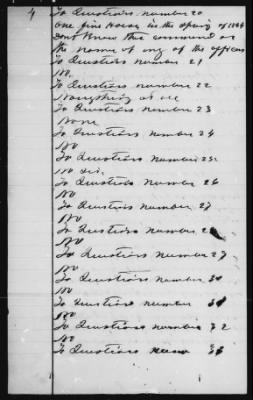 4 To Questions number 20
One fine Horse in the Spring of 1864
dont Know the command or
the name of any of the officers
To Questions number 21
No
To Questions number 22
number 23
None
To Questions number 24
No
To Questions number 25
No Sir
To Questions number 26
No
To Questions number 27
No
To Questions number 2
No
To Questions number 29
No
To Questions number 30
No
To Questions number 31
No
To Questions number 32
No
To Questions 33